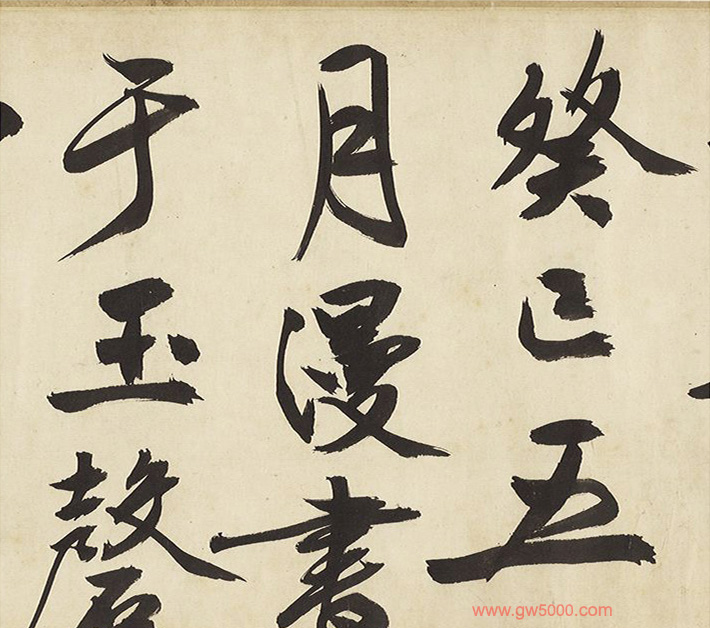 癸巳五
月漫書
于玉磬
www.gw5000.com